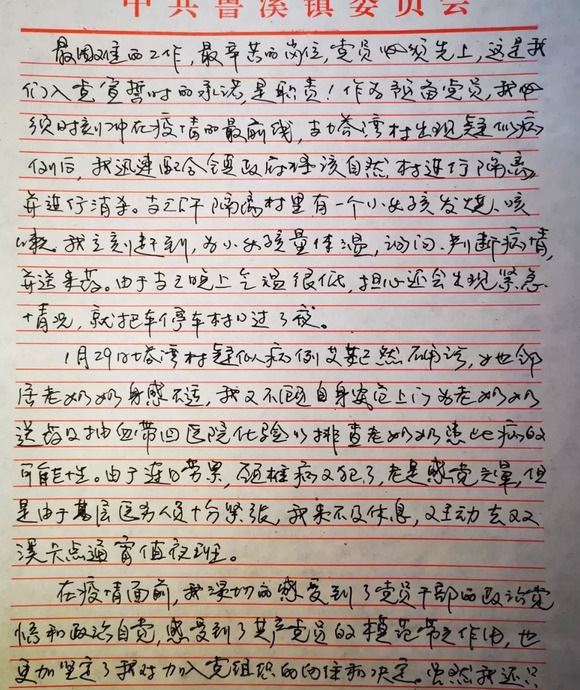 中共鲁溪镇委员会
最困难的工作，最辛苦的岗位，党员必须先上，这是我
们入党宣誓时的承诺，是职责！作为预备党员，我必
须时刻冲在疫情的最前线，塔湾村出现疑似病
例后，我迅速配合镇政府将该自然村进行隔离，
并进行消杀。下午隔离村里有一个小女孩发烧、咳
嗽。我立刻赶到，为小女孩量体温，询问、判断病情，
并送来药。由于晚上气温很低，担心还会出现紧急
情况，就把车停车村口过了夜。
1月29日塔湾村疑似病例艾某已然确诊，她邻
居老奶奶身感不适，我又不顾自身安危上门为老奶奶
送药及抽血带回医院化验以排查老奶奶患此病的
可能性。由于连日劳累，颈椎病又犯了，老是感觉头晕，但
是由于基层医务人员十分紧张，我来不及休息，又主动去双
溪卡点通宵值夜班。
在疫情面前，我深切的感受到了党员干部的政治觉
悟和政治自觉，感受到了共产党员的模范带头作用，也
更加坚定了我对加入党组织的向往和决定。虽然我还只